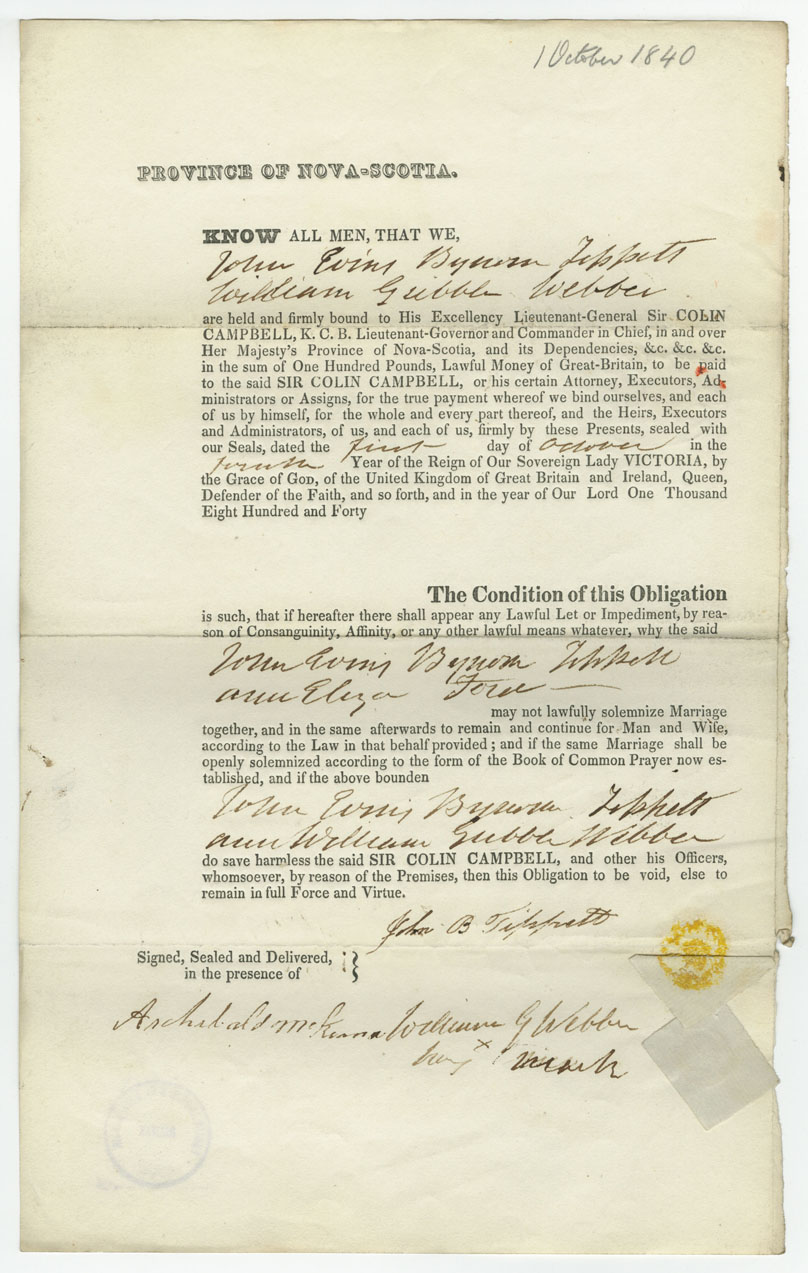 1 October 1840
PROVINCE OF NOVA-SCOTIA.
KNOW ALL MEN, THAT WE,
John Evins Bynorn Tippett
William Gribble Webber.
are held and firmly bound to His Excellency Lieutenant-General Sir COLIN
CAMPBELL, K. C. B. Lieutenant-Governor and Commander in Chief, in and over
Her Majesty's Province of Nova-Scotia, and its Dependencies, &c. &c. &c.
in the sum of One Hundred Pounds, Lawful Money of Great-Britain, to be paid
to the said SIR COLIN CAMPBELL, or his certain Attorney, Executors, Ad-
ministrators or Assigns, for the true payment whereof we bind ourselves, and each
of us by himself, for the whole and every part thereof, and the Heirs, Executors
and Administrators, of us, and each of us, firmly by these Presents, sealed with
our Seals, dated the first day of October in the
fourth Year of the Reign of Our Sovereign Lady VICTORIA, by
the Grace of GOD, of the United Kingdom of Great Britain and Ireland, Queen,
Defender of the Faith, and so forth, and in the year of Our Lord One Thousand
Eight Hundred and Forty
The Condition of this Obligation
is such, that if hereafter there shall appear any Lawful Let or Impediment, by rea-
son of Consanguinity, Affinity, or any other lawful means whatever, why the said
John Evins Bynorn Tippett
Ann Eliza Ford
may not lawfully solemnize Marriage
together, and in the same afterwards to remain and continue for Man and Wife,
according to the Law in that behalf provided; and if the same Marriage shall be
openly solemnized according to the form of the Book of Common Prayer now es-
tablished, and if the above bounden
John Evins Bynorn Tippett
William Gribble Webber
do save harmless the said SIR COLIN CAMPBELL, and other his Officers,
whomsoever, by reason of the Premises, then this Obligation to be void, else to
remain in full Force and Virtue.
John B Tippett
Signed, Sealed and Delivered,
in the presence of
Archibald McKenna William G Webber
his x mark